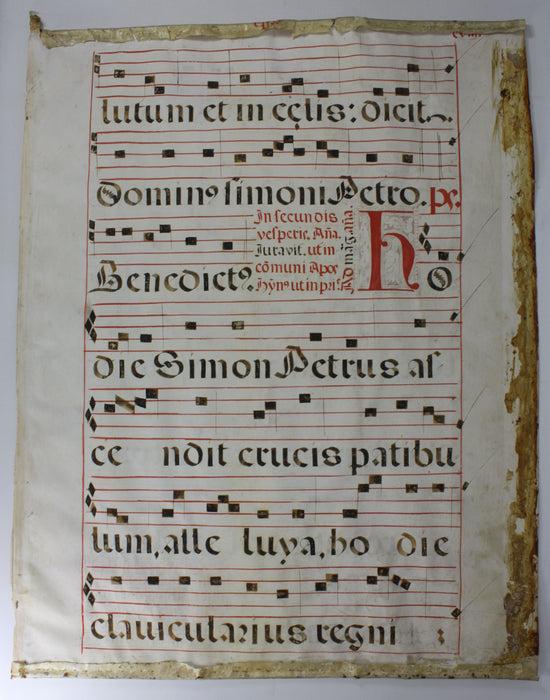 lutum et in cęlis: dicit
Dominꝰ simoni Petro. ps.
In secundis
vesperis. Aña.
Iuravit. ut in
cōmuni Apoꝝ
Hỹnꝰ ut in pris
Ad mag̃. aña.
Benedictꝰ. HO
die Simon Petrus as
ce ndit crucis patibu
lum, alle luya, ho die
clavicularius regni :